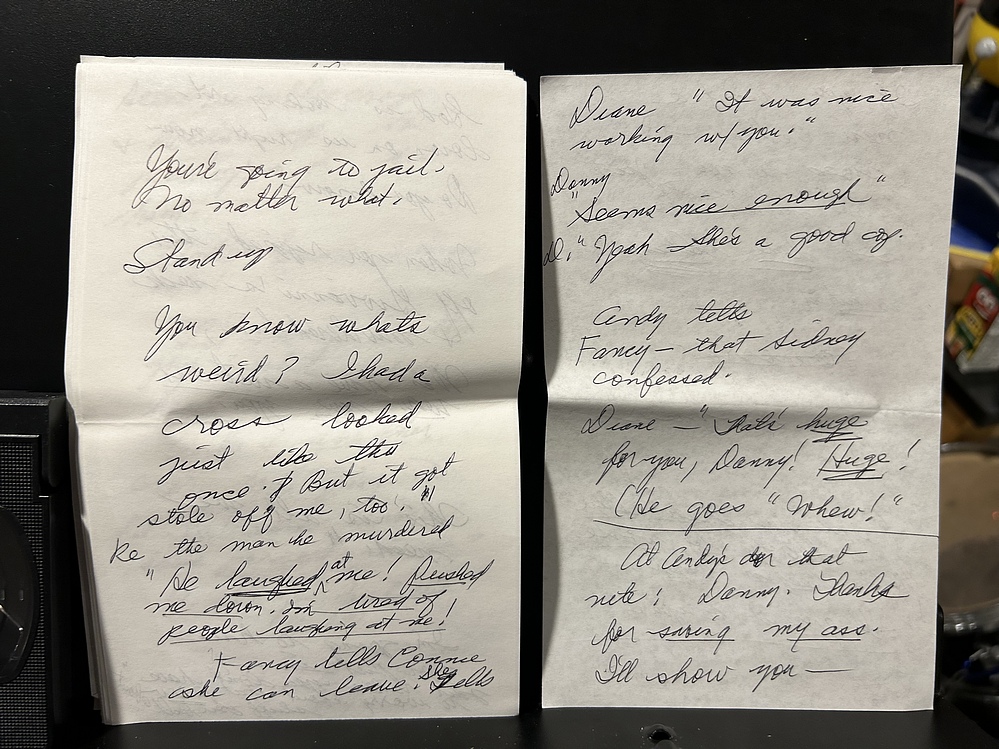 You're going to jail.
No matter what.
Stand up
You know whats
weird? I had a
cross looked
just like this
once. But it got
stole off me, too."
Re the man he murdered
"He laughed at me! Pushed
me down. Im tired of
people laughing at me!
Fancy tells Connie
she can leave. She tells
Diane "It was nice
working w/ you."
Danny
"Seems nice enough"
D. "Yeah She's a good cop.
Andy tells
Fancy – that Sidney
confessed.
Diane – "That's huge
for you, Danny! Huge!
(He goes "Whew!"
At Andy's door that
nite: Danny. Thanks
for saving my ass.
I'll show you —